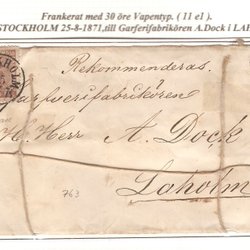 Frankerat med 30 öre Vapentyp. ( 11 e1 ).
STOCKHOLM 25-8-1871,till Garferifabrikören A.Dock i LA
Rekommenderas.
Garfverifabrikören
H. Herr A. Dock
Laholm
763